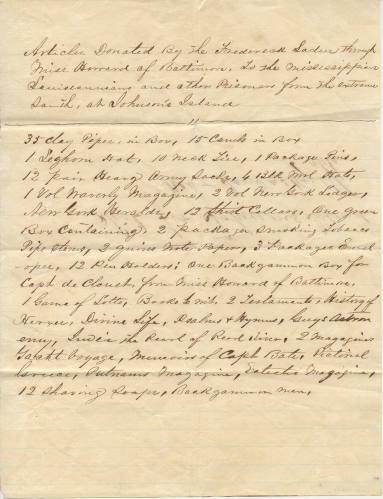 Articles Donated By the Frederick Ladies through
Miss Howard of Baltimore. To the Mississippian
Louisianians and other Prisoners from the extreme
South, at Johnson's Island
"
35 Clay Pipes, in Box, 15 Combs in Box
1 Leghorn Hat, 10 Neck Ties, 1 Package Pins,
12 pair Heavy Army Socks, 4 Blk Wol Hats,
1 Vol Waverly Magazine, 2 Vol New York Ledger,
New York Heralds, 12 Shirt Collars, One green
Box Containing 2 packages Smoking Tobacco
Pipe Stems, 2 quires Note Paper, 3 Packages Envel
opes, 12 Pen Holders; One Backgammon Box for
Capt de Clouet, from Miss Howard of Baltimore,
1 Game of Lotto, Books to wit. 2 Testaments, History of
Divine Life, Psalms & Hymns, Guys Astron
omy, the Pearl of Pearl River, 2 Magazines
Voyage, Memoirs of Capt Bates, Fictional
Putnams Magazine, Eclectic Magazine,
12 Shaving Soaps, Backgammon men,